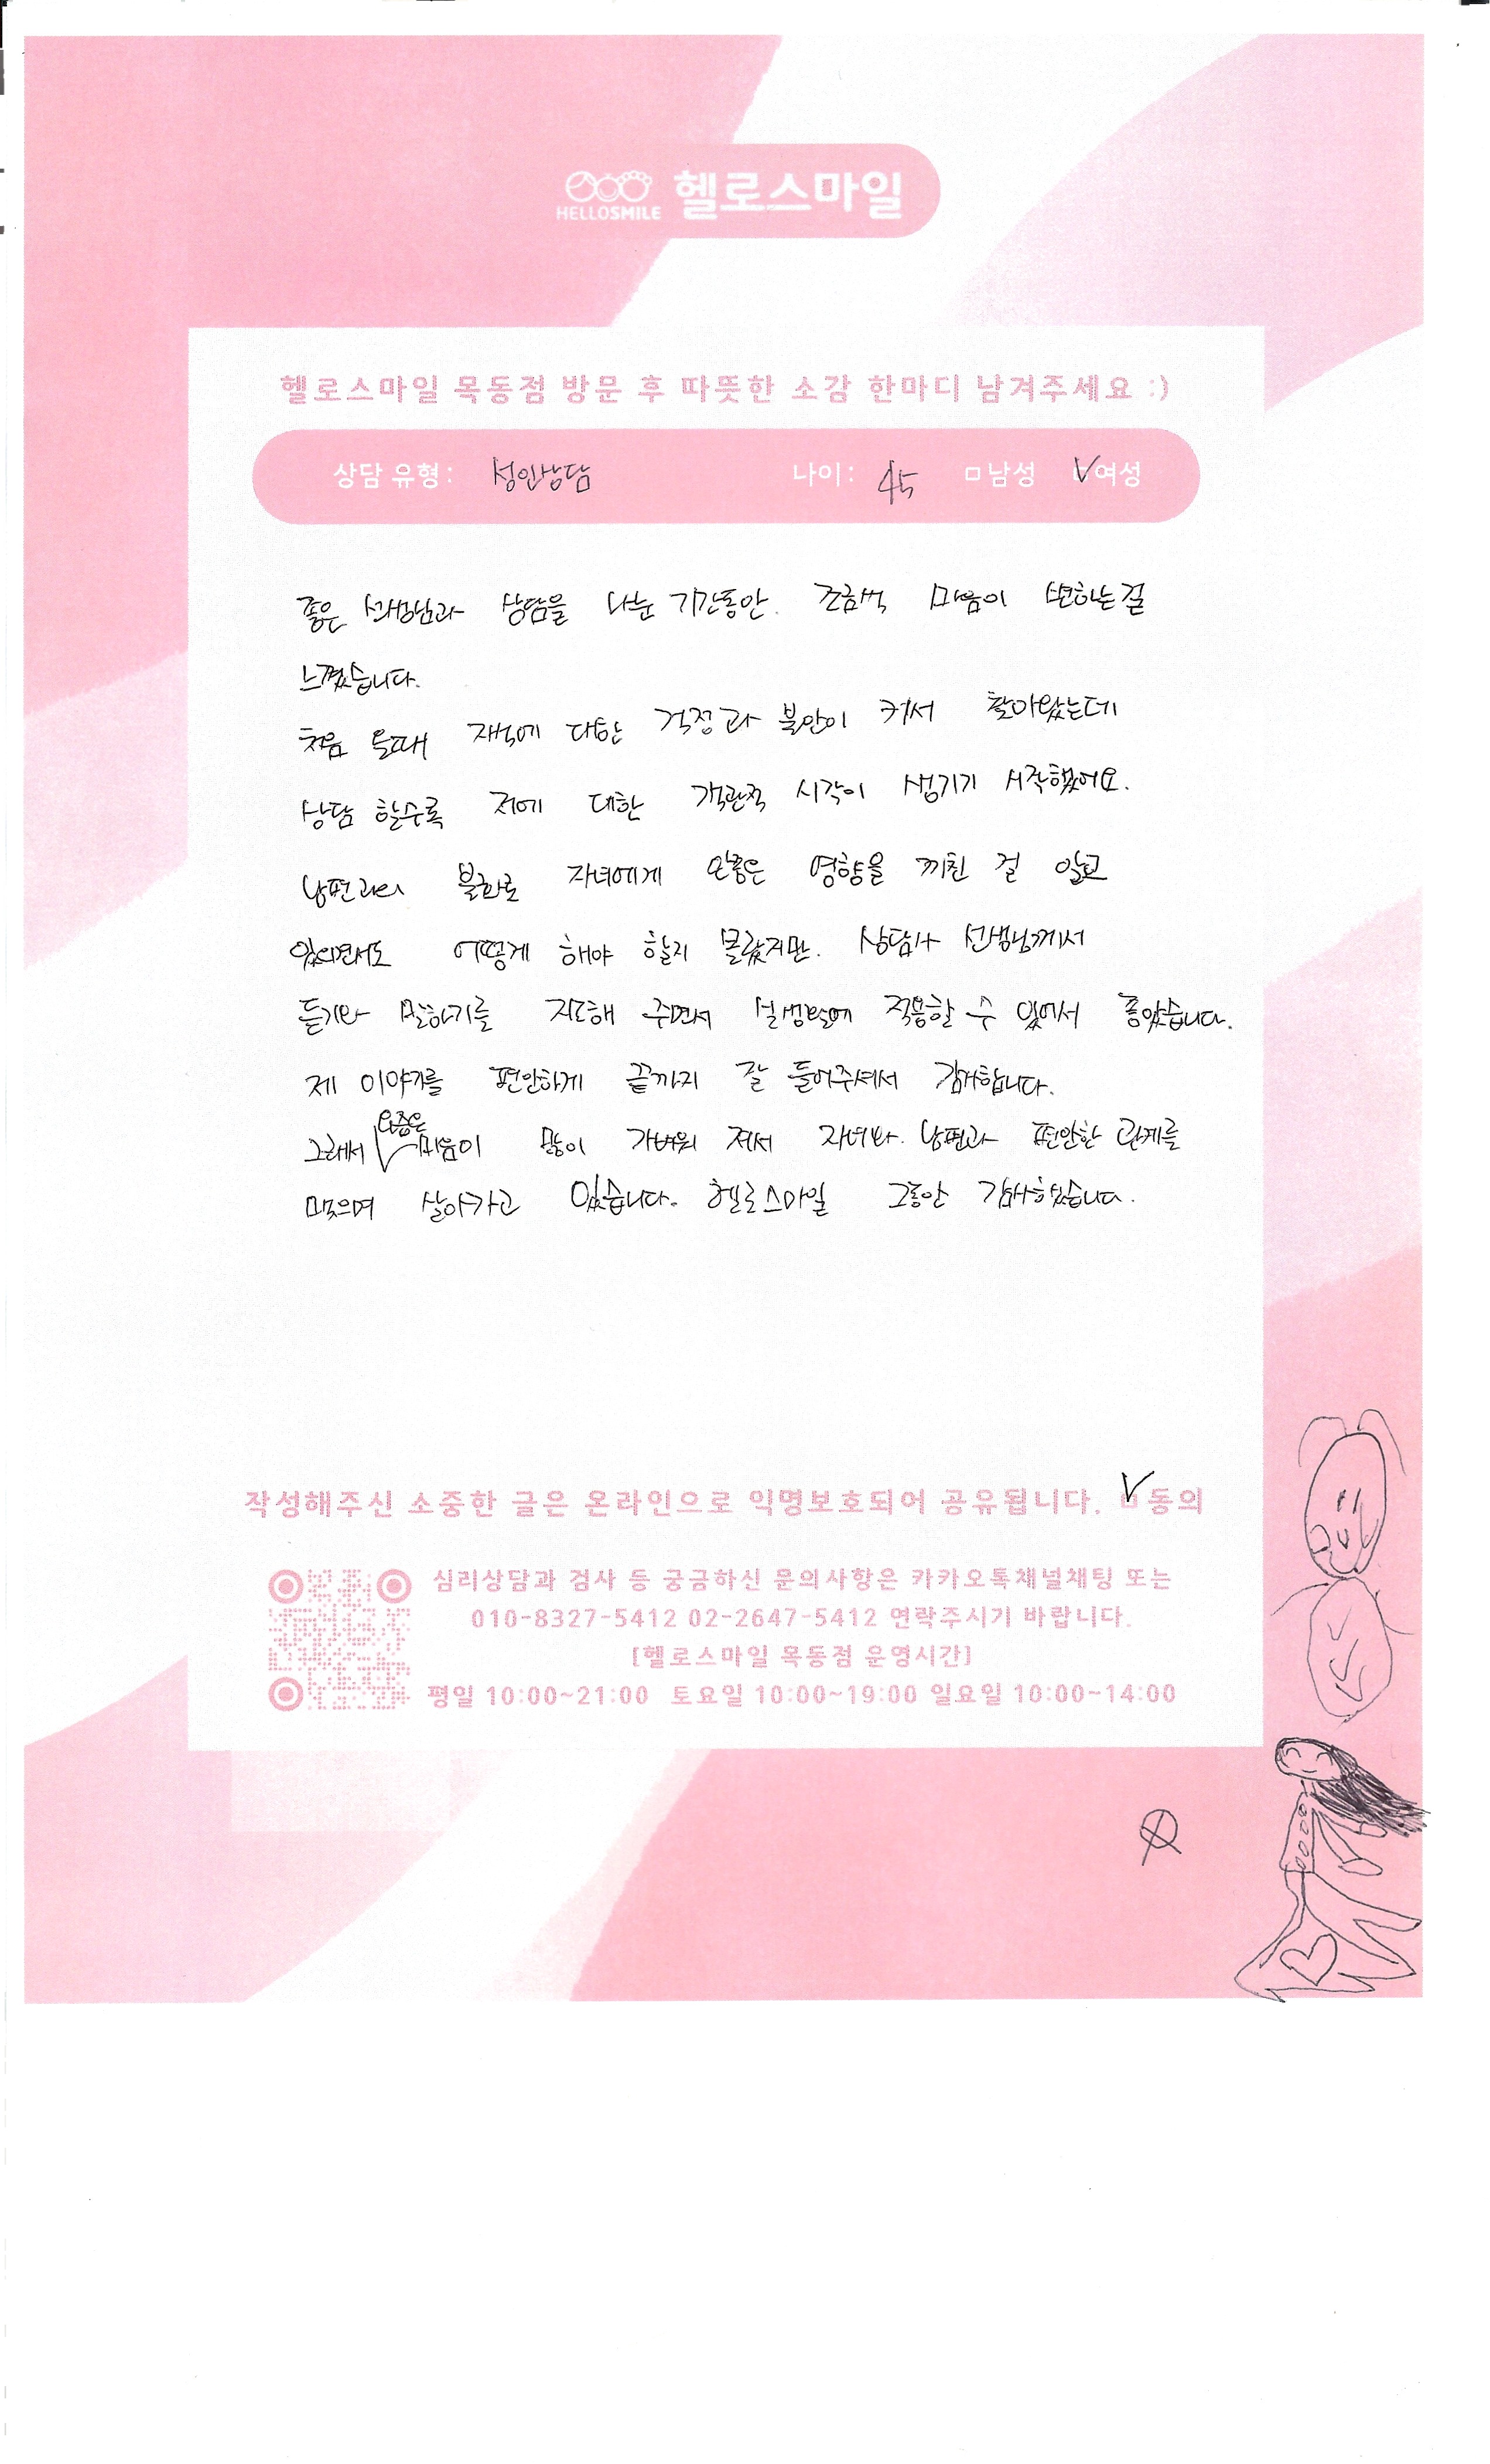 HELLOSMILE 헬로스마일
헬로스마일 목동점 방문 후 따뜻한 소감 한마디 남겨주세요 :)
상담 유형: 성인상담 나이: 45 □남성 ☑여성
좋은 선생님과 상담을 나눈 기간동안. 조금씩 마음이 변하는걸
느꼈습니다.
처음 올때 자녀에 대한 걱정과 불안이 커서 찾아왔는데
상담 할수록 저에 대한 객관적 시각이 생기기 시작했어요.
남편과의 불화로 자녀에게 안좋은 영향을 끼친 걸 알고
있으면서도 어떻게 해야 할지 몰랐지만. 상담사 선생님께서
듣기와 말하기를 지도해 주면서 실생활에 적용할 수 있어서 좋았습니다.
제 이야기를 편안하게 끝까지 잘 들어주셔서 감사합니다.
그래서 요즘은 마음이 많이 가벼워 져서 자녀와. 남편과 편안한 관계를
맺으며 살아가고 있습니다. 헬로스마일 그동안 감사했습니다.
작성해주신 소중한 글은 온라인으로 익명보호되어 공유됩니다. ☑동의
심리상담과 검사 등 궁금하신 문의사항은 카카오톡채널채팅 또는
010-8327-5412 02-2647-5412 연락주시기 바랍니다.
[헬로스마일 목동점 운영시간]
평일 10:00~21:00 토요일 10:00~19:00 일요일 10:00~14:00